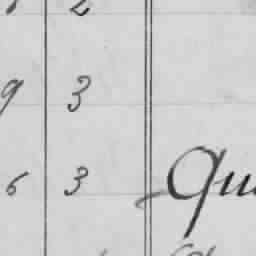 2
9 3
6 3 Qu